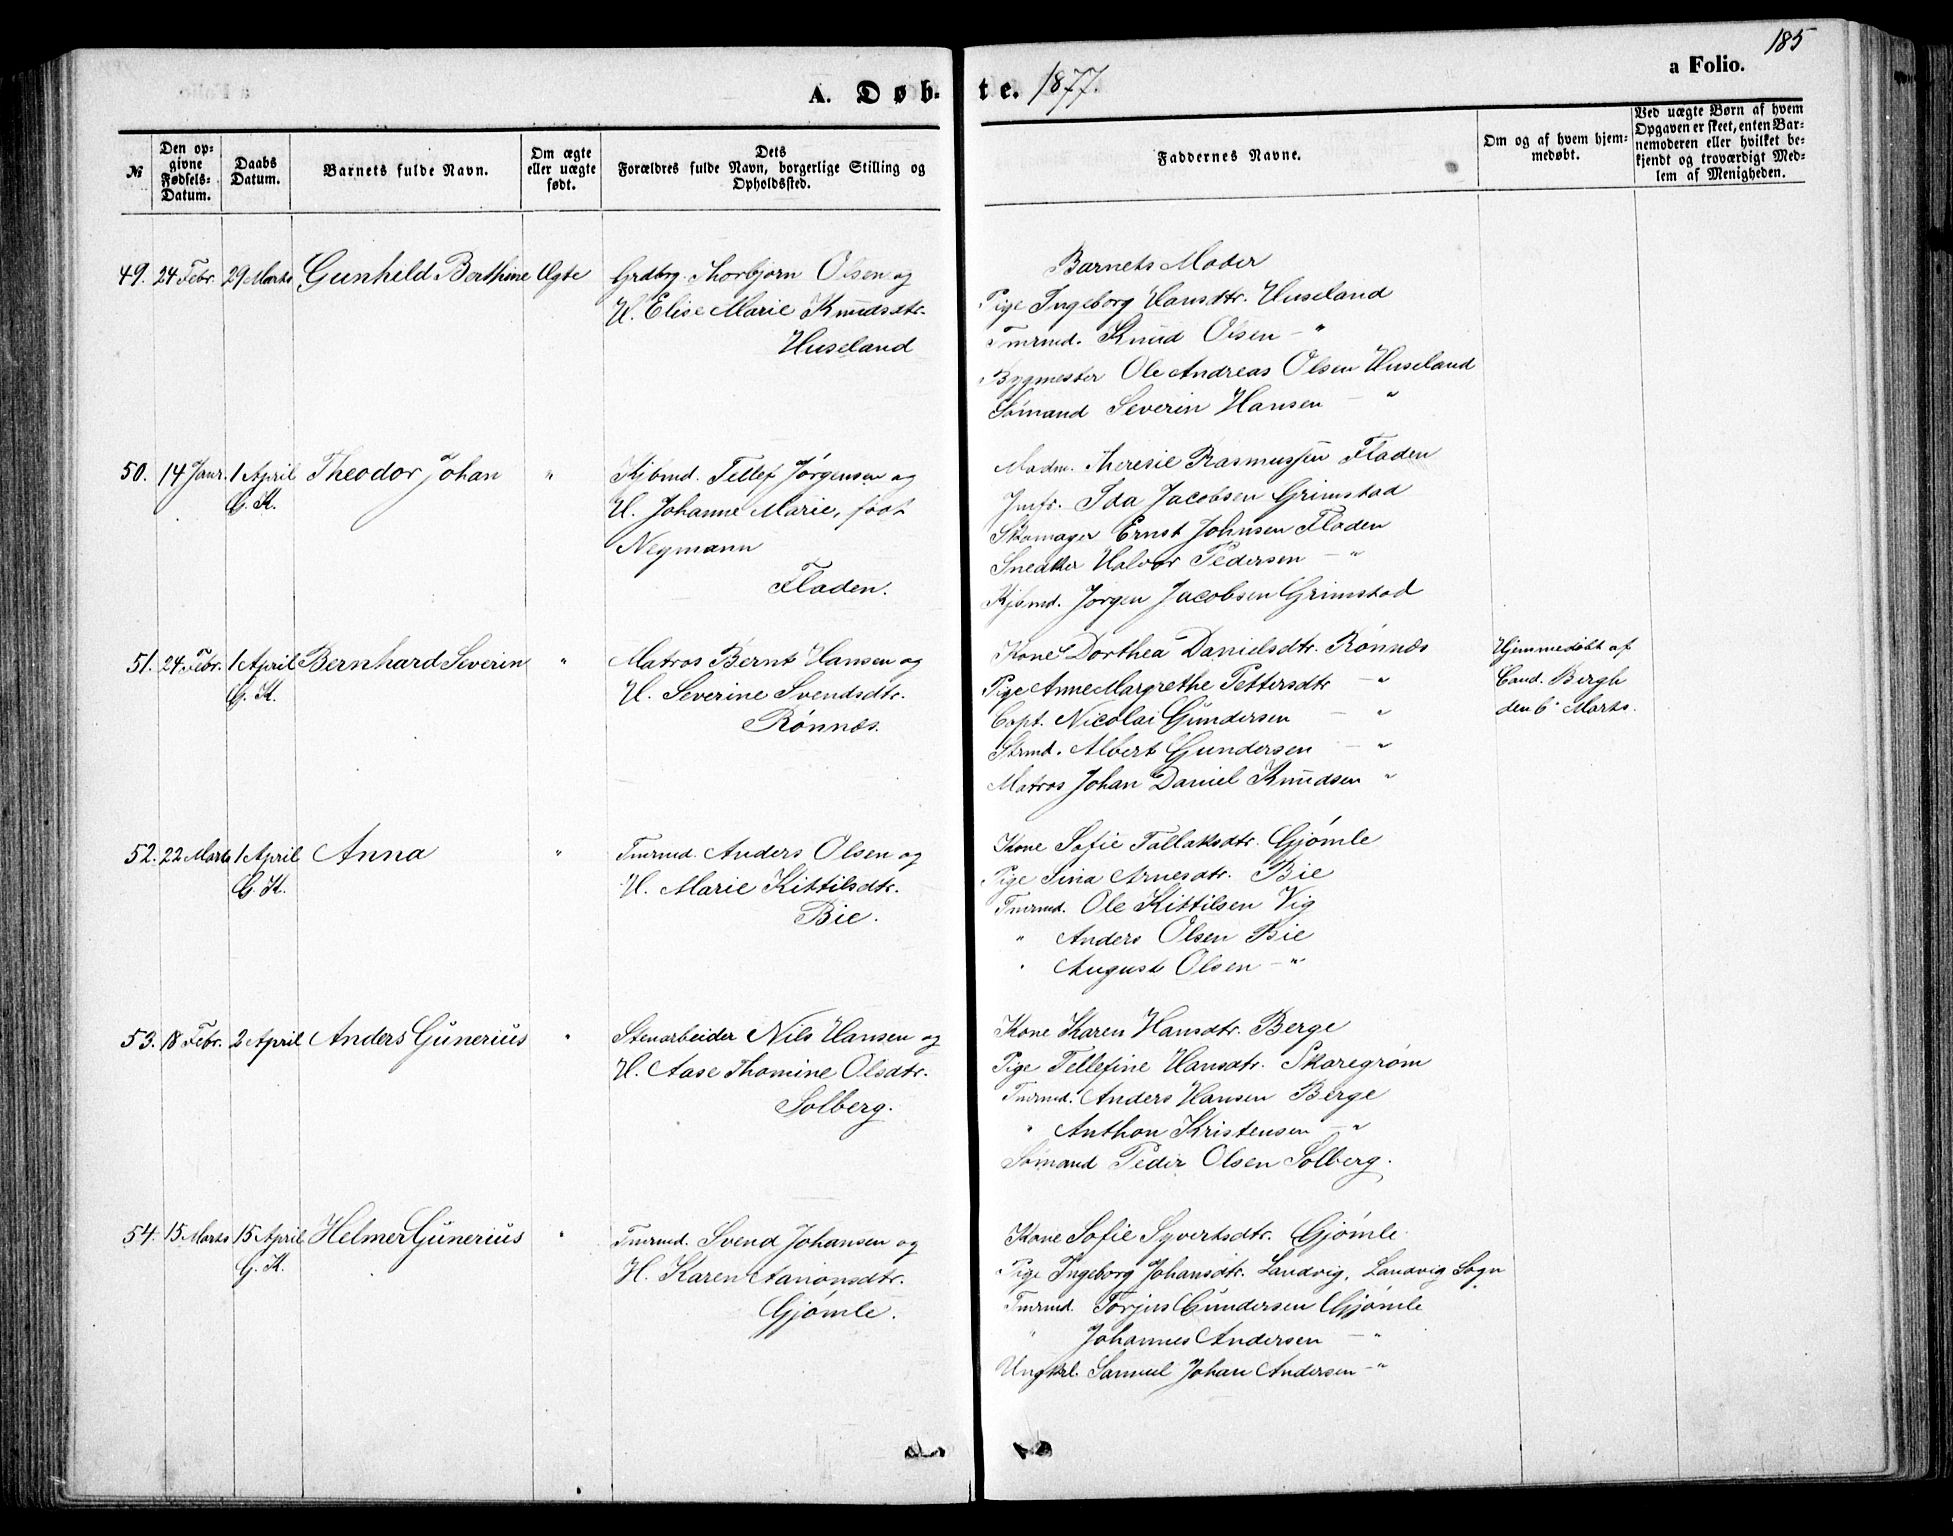 185
a Folio.
A. Døbte. 1877.
№
Den opgivne Fødsels-Datum.
Daabs Datum.
Barnets fulde Navn.
Om ægte eller uægte født.
Dets Forældres fulde Navn, borgerlige Stilling og Opholdssted.
Faddernes Navne.
Om og af hvem hjemmedøbt.
Ved uægte Børn af hvem Opgaven er skeet, enten Barnemoderen eller hvilket bekjendt og troværdigt Medlem af Menigheden.
49. 24 Febr. 29 Marts Gunhild Berthine Ægte Grdbrg. Thorbjørn Olsen og
H. Elise Marie Knudsdtr.
Huseland
Barnets Moder
Pige Ingeborg Hansdtr. Huseland
Tmrmd. Knud Olsen — "
Bygmester Ole Andreas Olsen Huseland
Sømand Severin Hansen — "
50. 14 Janr. 1 April Theodor Johan " Kjbmd. Tellef Jørgensen og
G. K. H. Johanne Marie, født
Neymann
Fladen.
Madm. Theresie Rasmussen Fladen
Jmfr. Ida Jacobsen Grimstad
Skomager Ernst Johnsen Fladen
Snedker Halvor Pedersen — "
Kjbmd. Jørgen Jacobsen Grimstad
51. 24 Febr. 1 April Bernhard Severin " Matros Bernt Hansen og
G. K. H. Severine Svendsdtr.
Rønnes.
Kone Dorthea Danielsdtr. Rønnes
Pige Anne Margrethe Pettersdtr — "
Capt. Nicolai Gundersen — "
Strmd. Albert Gundersen — "
Matros Johan Daniel Knudsen "
Hjemmedøbt af
Cand. Bergh
den 6 Marts.
52. 22 Marts 1 April Anna " Tmrmd. Anders Olsen og
G. K. H. Marie Kittilsdtr.
Bie.
Kone Sofie Tallaksdtr. Gjømle
Pige Sina Arnesdtr. Bie
Tmrmd. Ole Kittilsen Vig
" Anders Olsen Bie
" August Olsen — "
53. 18 Febr. 2 April Anders Gunerius " Stenarbeider Nils Hansen og
H. Aase Thomine Olsdtr.
Solberg.
Kone Karen Hansdtr. Berge
Pige Tellefine Hansdtr. Skaregrøm
Tmrmd. Anders Hansen Berge
" Anthon Kristensen — "
Sømand Peder Olsen Solberg.
54. 15 Marts 15 April Helmer Gunerius " Tmrmd. Svend Johansen og
G. K. H. Karen Aanonsdtr.
Gjømle.
Kone Sofie Syvertsdtr. Gjømle
Pige Ingeborg Johansdtr. Landvig, Landvig Sogn
Tmrmd. Torjus Gundersen Gjømle
" Johannes Andersen — "
Ungkrl. Samuel Johan Andersen — "